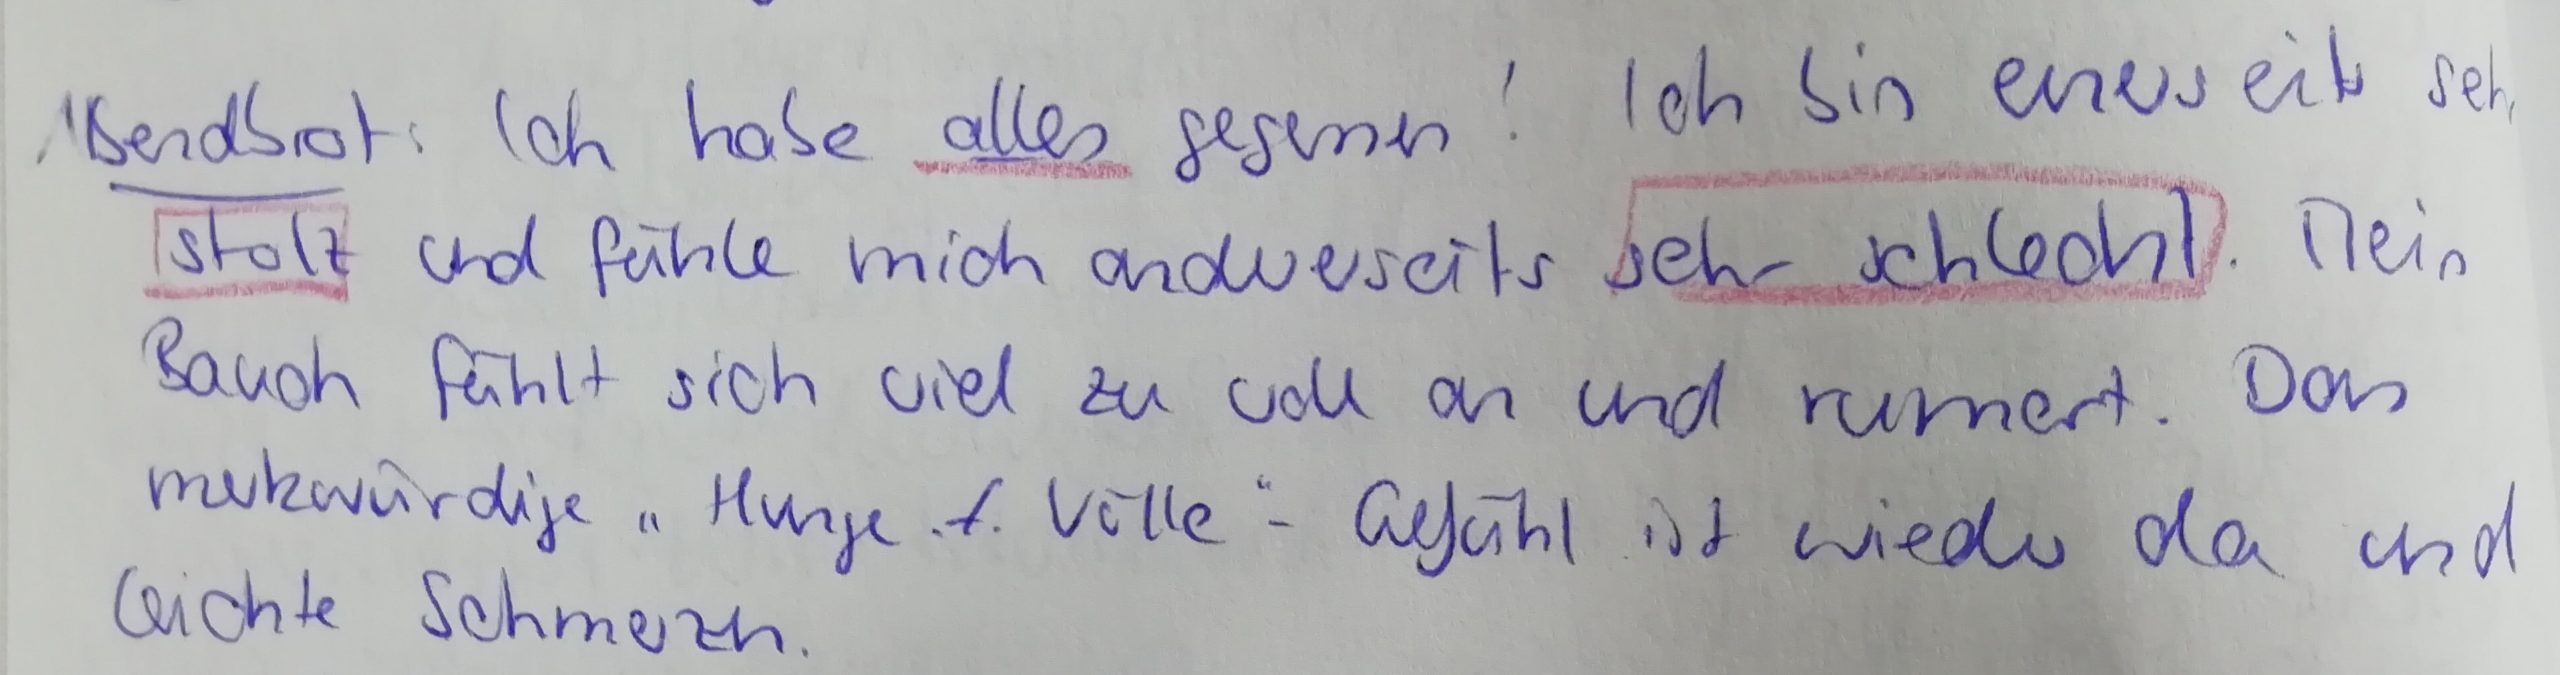 Abendbrot: Ich habe alles gegessen! Ich bin einerseits sehr
stolz und fühle mich andererseits sehr schlecht. Mein
Bauch fühlt sich viel zu voll an und rumort. Das
merkwürdige „Hunger Völle"-Gefühl ist wieder da und
leichte Schmerzen.